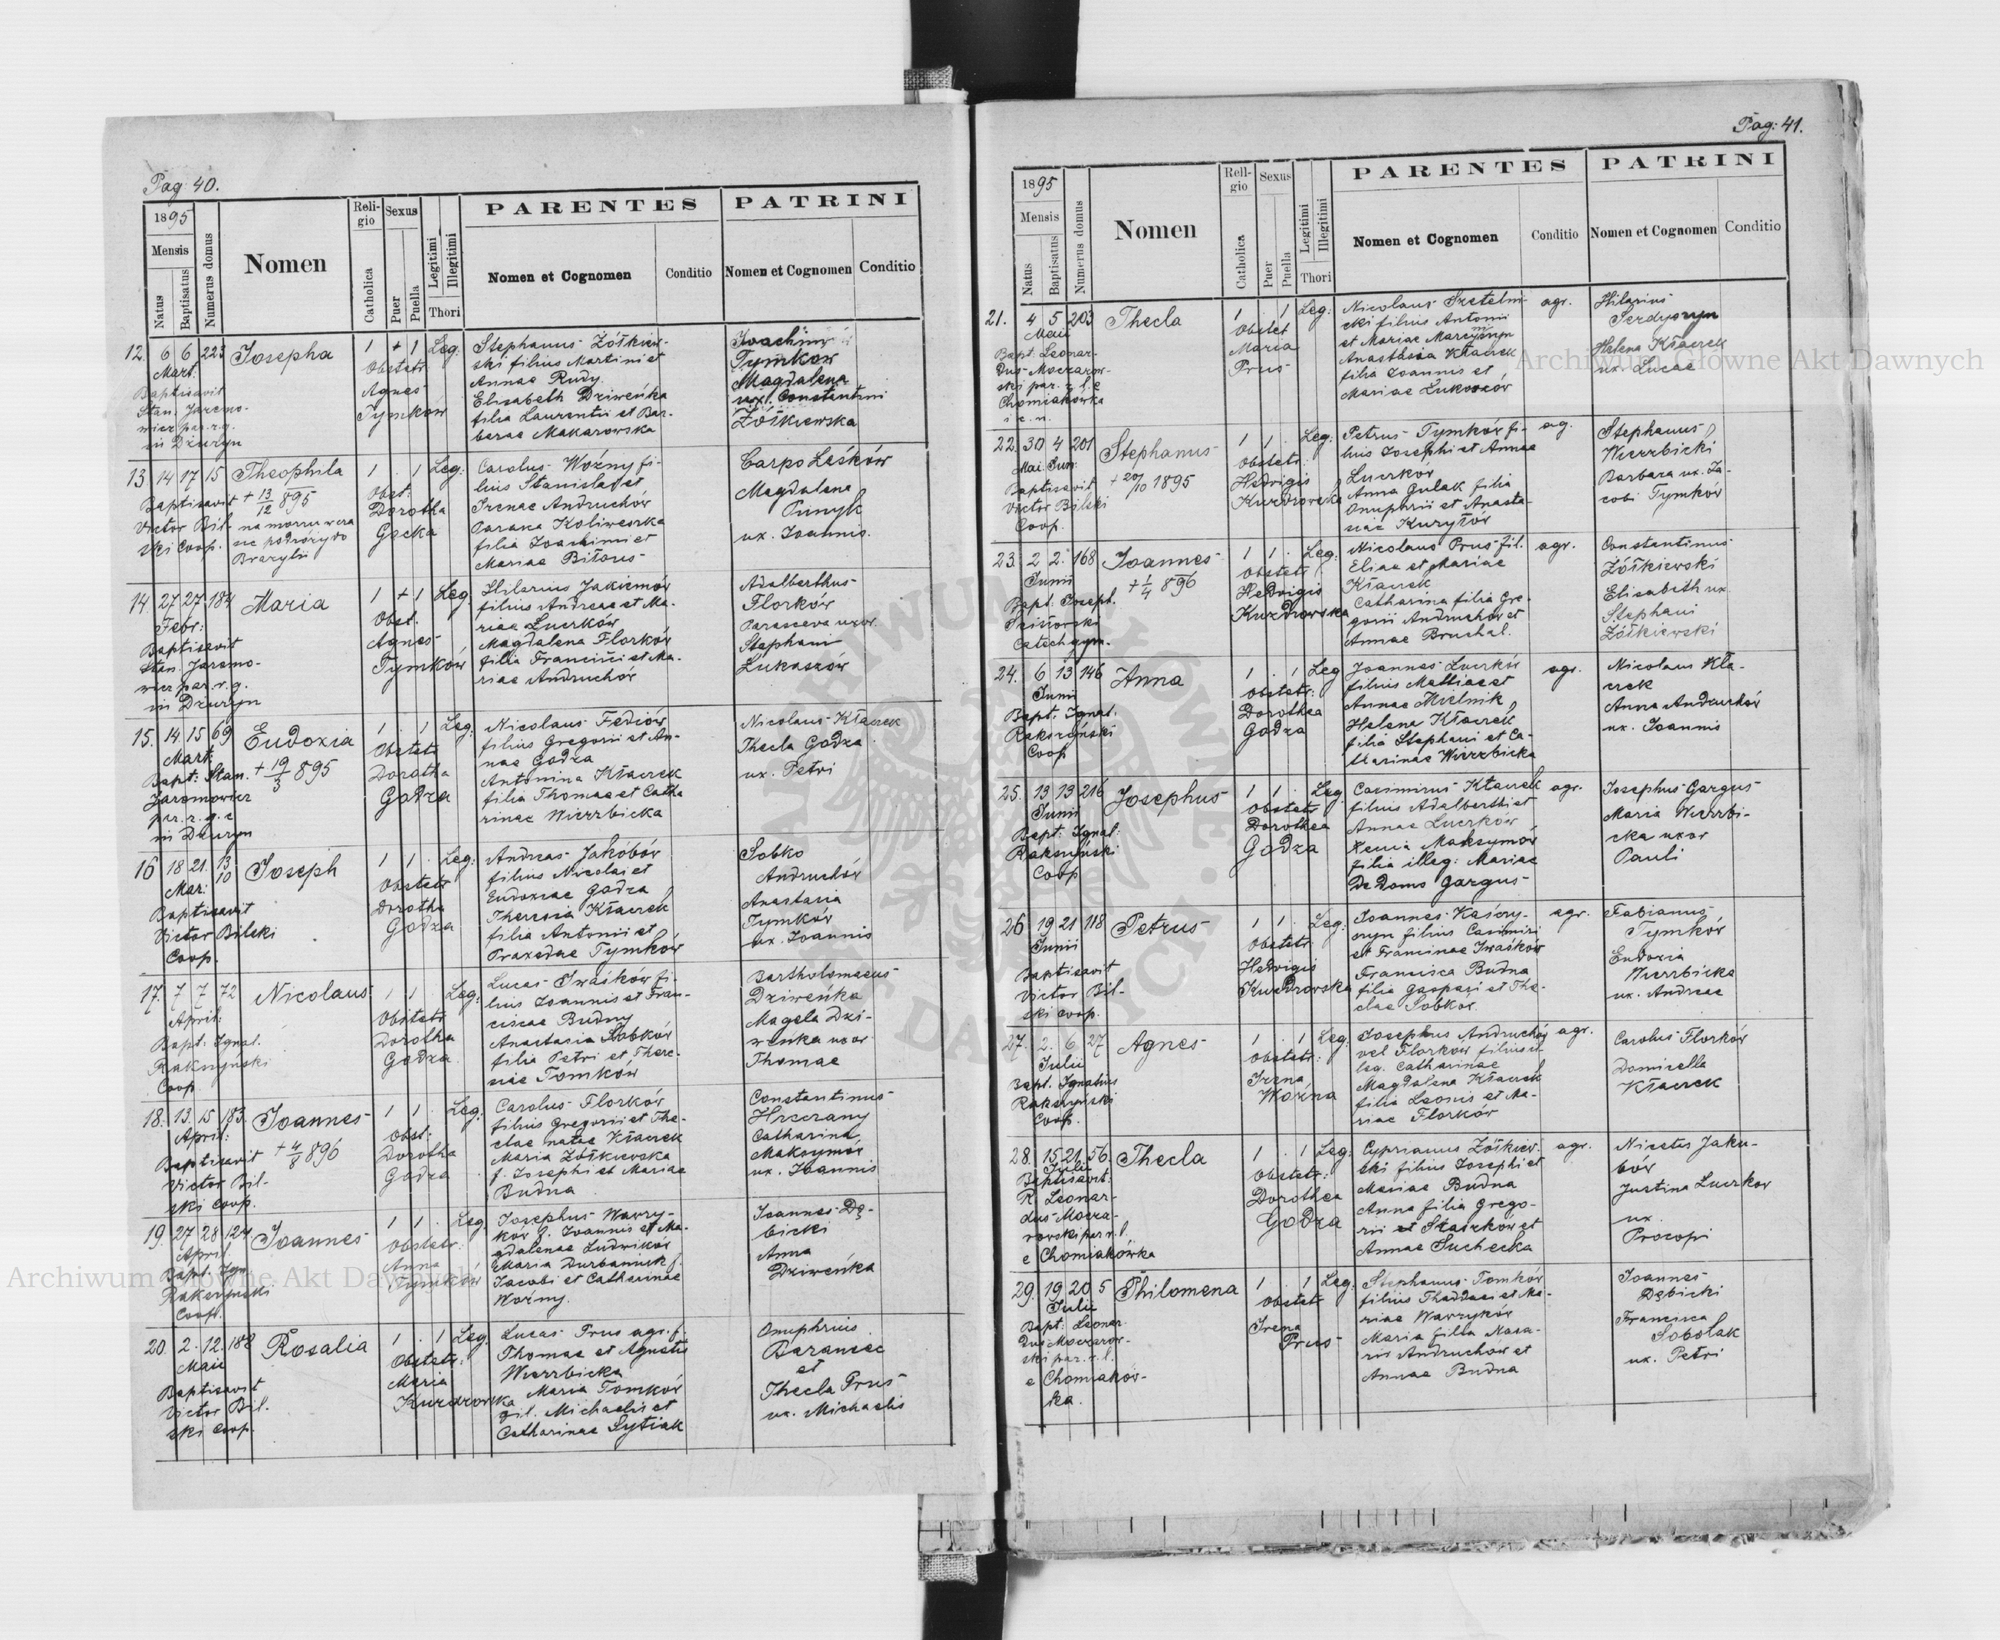 Pag 40.
1895
Mensis
Natus
Baptisatus
Numerus domus
Nomen
Religio
Catholica
Sexus
Puer
Puella
Legitimi
Illegitimi
Thori
PARENTES
Nomen et Cognomen
Conditio
PATRINI
Nomen et Cognomen
Conditio
12. 6 6 223 Josepha 1 + 1 Leg:
Mart.
Baptisavit
Stan. Jaremo-
wicz par. r. g.
in Dżuryn
Obstetr
Agnes
Tymków
Stephanus Żółkiew-
ski filius Martini et
Annae Rudy
Elisabeth Dziweńka
filia Laurentii et Bar-
barae Makarowska
Joachim
Tymkow
Magdalena
ux. Constantini
Żółkiewska
13 14 17 15 Theophila 1 . 1 Leg:
Baptisavit + 13/12 895
Victor Bil-
ski Coop.
na morzu w cza
sie podróży do
Brazylii
Obst:
Dorotha
Gocka
Carolus Woźny fi-
lius Stanislai et
Irenae Andruchów
Paraxa Koliweszka
filia Joachimi et
Mariae Biłous
Carpo Leśków
Magdalena
Punyk
ux. Joannis
14. 27 27 184 Maria 1 + 1 Leg.
Febr:
Baptisavit
Stan. Jaremo-
wicz par. r. g.
in Dżuryn
Obst.
Agnes
Tymków
Hilarius Jakimów
filius Andreae et Ma-
riae Luczków
Magdalena Florków
filia Francisci et Ma-
riae Andruchów
Adalberthus
Florków
Parasceva uxor
Stephani
Lukaszów
15. 14 15 69 Eudoxia 1 . 1 Leg:
Mart.
Bapt: Stan. + 19/3 895
Jaremowicz
par. r. g. e
in Dżuryn
Obstetr
Dorotha
Godza
Nicolaus Fediów
filius Gregorii et An-
nae Godza
Antonina Kłaczek
filia Thomae et Catha
rinae Wierzbicka
Nicolaus Kłaczek
Thecla Godza
ux. Petri
16 18 21. 13/10 Joseph 1 1 . Leg:
Mar:
Baptisavit
Victor Bilski
Coop.
Obstetr
Dorotha
Godza
Andreas Jakóbów
filius Nicolai et
Eudoxiae Godza
Theresia Kłaczek
filia Antonii et
Praxedae Tymków
Sobko
Andruchów
Anastasia
Tymków
ux. Joannis
17. 7 7 72 Nicolaus 1 1 . Leg:
April:
Bapt. Ignat.
Rakszyński
Coop.
Obstetr
Dorotha
Godza
Lucas Iwaśków fi-
lius Joannis et Fran-
ciscae Budny
Anastasia Sobków
filia Petri et There-
siae Tomków
Bartholomaeus
Dziweńka
Magda Dzi-
weńka uxor
Thomae
18. 13. 15 183. Joannes 1 1 . Leg:
April:
Baptisavit + 4/8 896
Victor Bil-
ski Coop.
Obst:
Dorotha
Godza
Carolus Florków
filius Gregorii et The-
clae natae Kłaczek
Maria Żółkiewska
f. Josephi et Mariae
Budna
Constantinus
Hrczany
Catharina
Maksymów
ux. Joannis
19. 27 28 124 Joannes 1 1 . Leg
April
Bapt. Ign.
Rakszyński
Coop.
Obstetr:
Anna
Tymków
Josephus Wawry-
ków f. Joannis et Ma-
gdalenae Ludwików
Maria Durbaniuk f.
Jacobi et Catharinae
Woźny.
Joannes Dę-
bicki
Anna
Dziweńka
20. 2. 12. 188 Rosalia 1 . 1 Leg.
Maii
Baptisavit
Victor Bil-
ski Coop.
Obstetr:
Maria
Kurdrowska
Lucas Prus agr. f.
Thomae et Agnetis
Wierzbicka
Maria Tomków
fil. Michaelis et
Catharinae Sytiak
Onuphrius
Baraniec
et
Thecla Prus
ux. Michaelis
Pag: 41.
1895
Mensis
Natus
Baptisatus
Numerus domus
Nomen
Religio
Catholica
Sexus
Puer
Puella
Legitimi
Illegitimi
Thori
PARENTES
Nomen et Cognomen
Conditio
PATRINI
Nomen et Cognomen
Conditio
21. 4 5 203 Thecla 1 . 1 Leg:
Maii
Bapt. Leonar-
dus Moczarow-
ski par. r. l. e
Chomiakówka
Obstet
Maria
Prus
Nicolaus Szetelni-
cki filius Antonii
et Mariae Marcyszyn
Anasthasia Kłaczek
filia Joannis et
Mariae Lukoszów
agr.
Hilarius
Serdyszyn
Helena Kłaczek
ux. Lucae
22. 30 4 201 Stephanus 1 1 . Leg:
Mai. Jun:
Baptisavit + 20/10 1895
Victor Bilski
Coop.
Obstetr:
Hedvigis
Kurdrowska
Petrus Tymków fi-
lius Josephi et Annae
Luczków
Anna Gulak filia
Onuphrii et Anasta-
siae Kuryłów
ag.
Stephanus
Wierzbicki
Barbara ux. Ja-
cobi Tymków
23. 2 2. 168 Joannes 1 1 . Leg:
Junii + 1/4 896
Bapt. Joseph.
Catech gym.
Obstetr
Hedvigis
Kurdrowska
Nicolaus Prus fil.
Eliae et Mariae
Kłaczek
Catharina filia Gre-
gorii Andruchów et
Annae Bruchal.
agr.
Constantinus
Żółkiewski
Elisabeth ux.
Stephani
Żółkiewski
24. 6 13 146 Anna 1 . 1 Leg
Junii
Bapt: Ignat.
Rakszyński
Coop
Obstetr:
Dorothea
Godza
Joannes Luczków
filius Matthiae et
Annae Mielnik
Helena Kłaczek
filia Stephani et Ca-
tharinae Wierzbicka
agr.
Nicolaus Kła-
czek
Anna Andruchów
ux. Joannis
25. 13 13 216 Josephus 1 1 . Leg
Junii
Bapt: Ignat:
Rakszyński
Coop
Obstetr
Dorothea
Godza
Casimirus Kłaczek
filius Adalberthi et
Annae Luczków
Xenia Maksymów
filia illeg: Mariae
De Domo Gargus
agr.
Josephus Gargus
Maria Wierzbi-
cka uxor
Pauli
26 19 21 118 Petrus 1 1 . Leg:
Junii
Baptisavit
Victor Bil-
ski Coop.
Obstetr
Hedvigis
Kurdrowska
Joannes Kaśczy-
szyn filius Casimiri
et Francinae Iwaśków
Francisca Budna
filia Gaspari et The-
clae Sobków.
agr.
Fabianus
Tymków
Eudoxia
Wierzbicka
ux. Andreae
27. 2. 6. 27 Agnes 1 . 1 Leg:
Julii
Bapt. Ignatius
Rakszyński
Coop.
Obstetr:
Irena
Woźna
Josephus Andruchów
vel Florków filius il-
leg. Catharinae
Magdalena Kłaczek
filia Leonis et Ma-
riae Florków
agr.
Carolus Florków
Domicella
Kłaczek
28. 15 21. 56. Thecla 1 . 1 Leg:
Julii
Baptisavit:
R. Leonar-
dus Mocza-
rowski par. r. l.
e Chomiakówka
Obstetr:
Dorothea
Godza
Cyprianus Żółkiew-
ski filius Josephi et
Mariae Budna
Anna filia Grego-
rii et Staszków et
Annae Suchecka
agr.
Nicetus Jaku-
bów
Justina Luczkow
ux.
Procopi
29. 19 20 5 Philomena 1 . 1 Leg:
Julii
Bapt: Leonar
dus Moczarow-
ski par. r. l.
e Chomiaków-
ka.
Obstetr
Irena
Prus
Stephanus Tomków
filius Thaddaei et Ma-
riae Wawryków
Maria filia Naza-
rii Andruchów et
Annae Budna
Joannes
Dębicki
Francisca
Sobolak
ux. Petri
Archiwum Główne Akt Dawnych
Archiwum Główne Akt Dawnych
ARCHIWUM GŁÓWNE AKT DAWNYCH